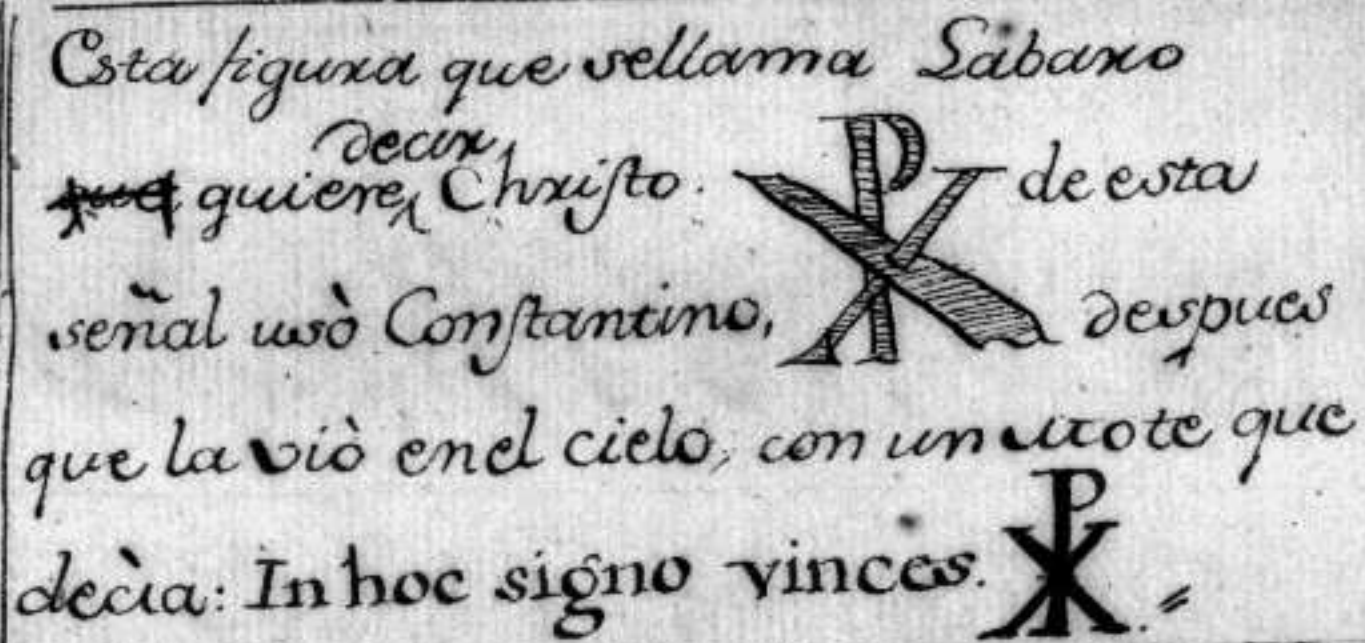 Esta figura que sellama Lábaro
quiere decir Christo. ☧ de esta
señal usò Constantino, despues
que la viò enel cielo, con un mote que
decìa: In hoc signo vinces. ☧.=